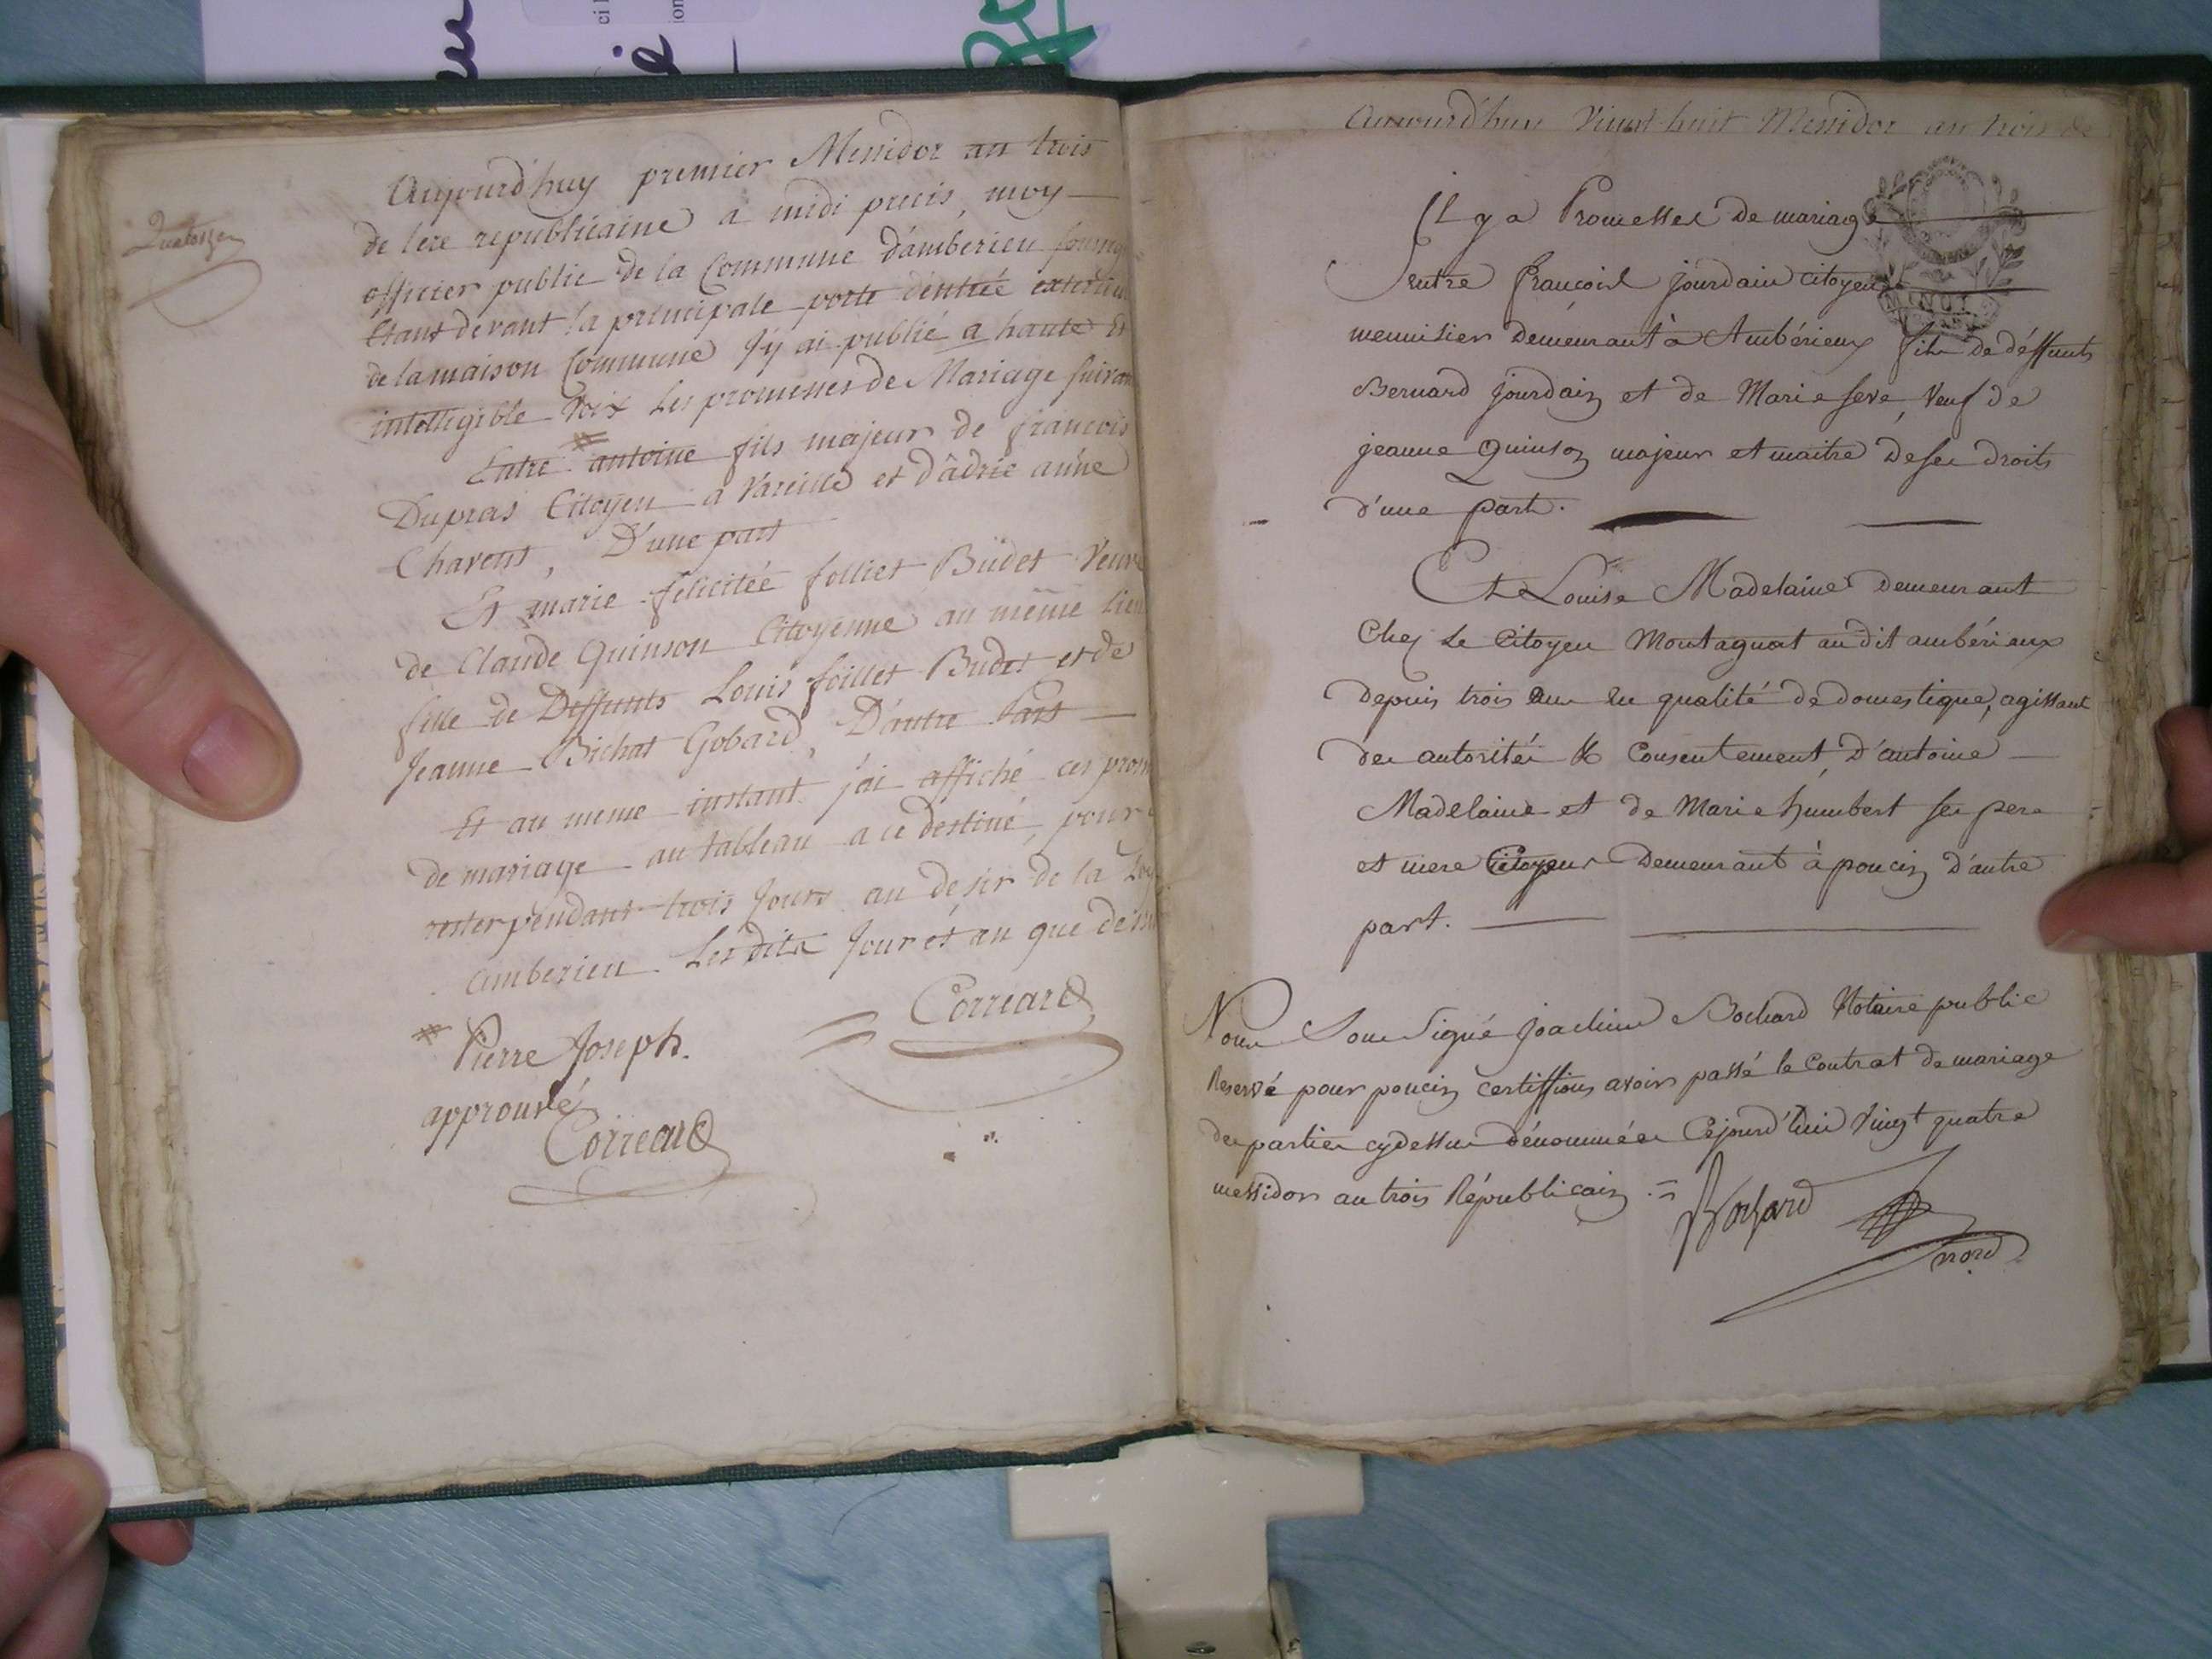 Quatorze
Aujourd'huy premier Messidor an trois
de l'ere republicaine a midi precis, moy
officier public de la Commune d'amberieu soussig
Etant devant la principale porte d'entrée exterieu
de la maison Commune j'y ai publié a haute et
intelligible Voix Les promesses de Mariage suivan
Entre # antoine fils majeur de francois
Dupras Citoyen a Vareille et d'âdrie anne
Charent, D'une part
Et marie felicitée folliet Büdet Veuve
de Claude Quinson Citoyenne au même lieu
fille de Deffunts Louis foillet Budet et de
Jeanne Bichat Gobard, D'autre Part
Et au meme instant j'ai affiché ces prom
de mariage au tableau a ce destiné, pour y
rester pendant trois Jours au desir de la Loy
amberieu Les dits Jour et an que dessu
# Pierre Joseph. Correard
approuvé
Correard
Aujourd'huy Vingt huit Messidor an trois de
Il y a Promesses de mariage
MINUT
Entre françois jourdain citoyen
menuisier demeurant à Ambérieux fils de déffunts
Bernard jourdain et de Marie seve, Veuf de
jeanne Quinson majeur et maitre de ses droits
d'une part.
Et Louise Madelaine demeurant
Chez Le Citoyen Montagnat au dit ambérieux
depuis trois ans en qualité de domestique, agissant
des autorités & Consentement d'antoine
Madelaine et de Marie humbert ses pere
et mere Citoyens Demeurant à poncin d'autre
part.
Nous Sous Signé joachim Bochard Notaire public
Reservé pour poncin certiffions avoir passé le Contrat de mariage
des parties cydessus dénommées Cejourd'hui Vingt quatre
messidor an trois Républicain =
Bochard
nord